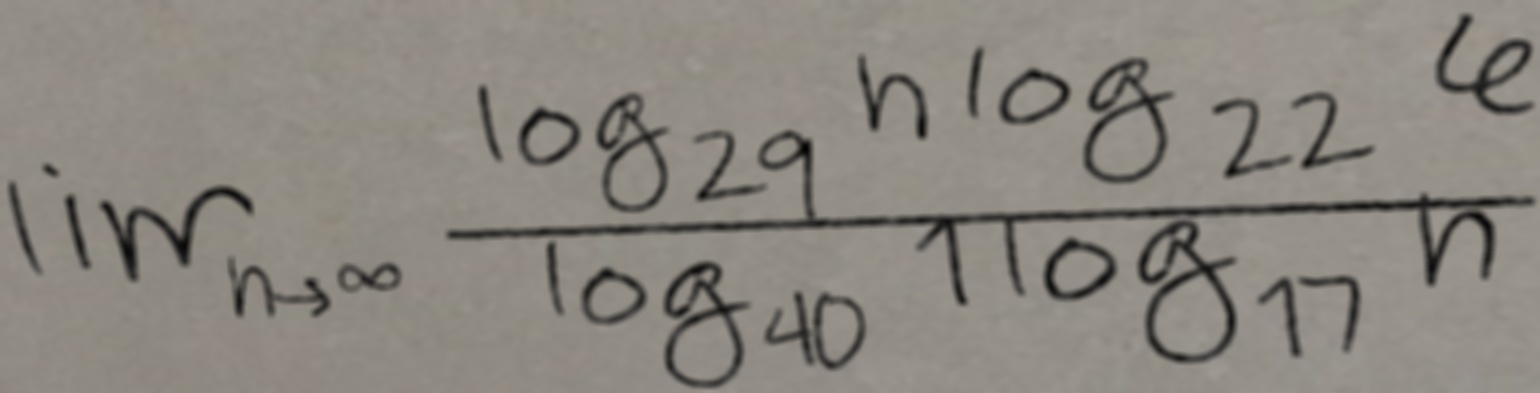 \lim_{n \to \infty} \frac{\log_{29} n \log_{22} 6}{\log_{40} 1 \log_{17} n}